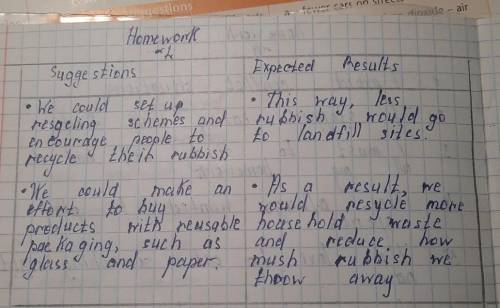 fewer cars on streets
dioxide – air
Homework
Suggestions
Expected Results
• We could set up
resycling schemes and
encourage people to
recycle theih rubbish
• This way, less
rubbish would go
to landfill sites.
• We could make an
effort to buy
products with reusable
packaging, such as
glass and paper.
• As a result, we
would resycle more
household waste
and reduce how
mush rubbish we
throw away